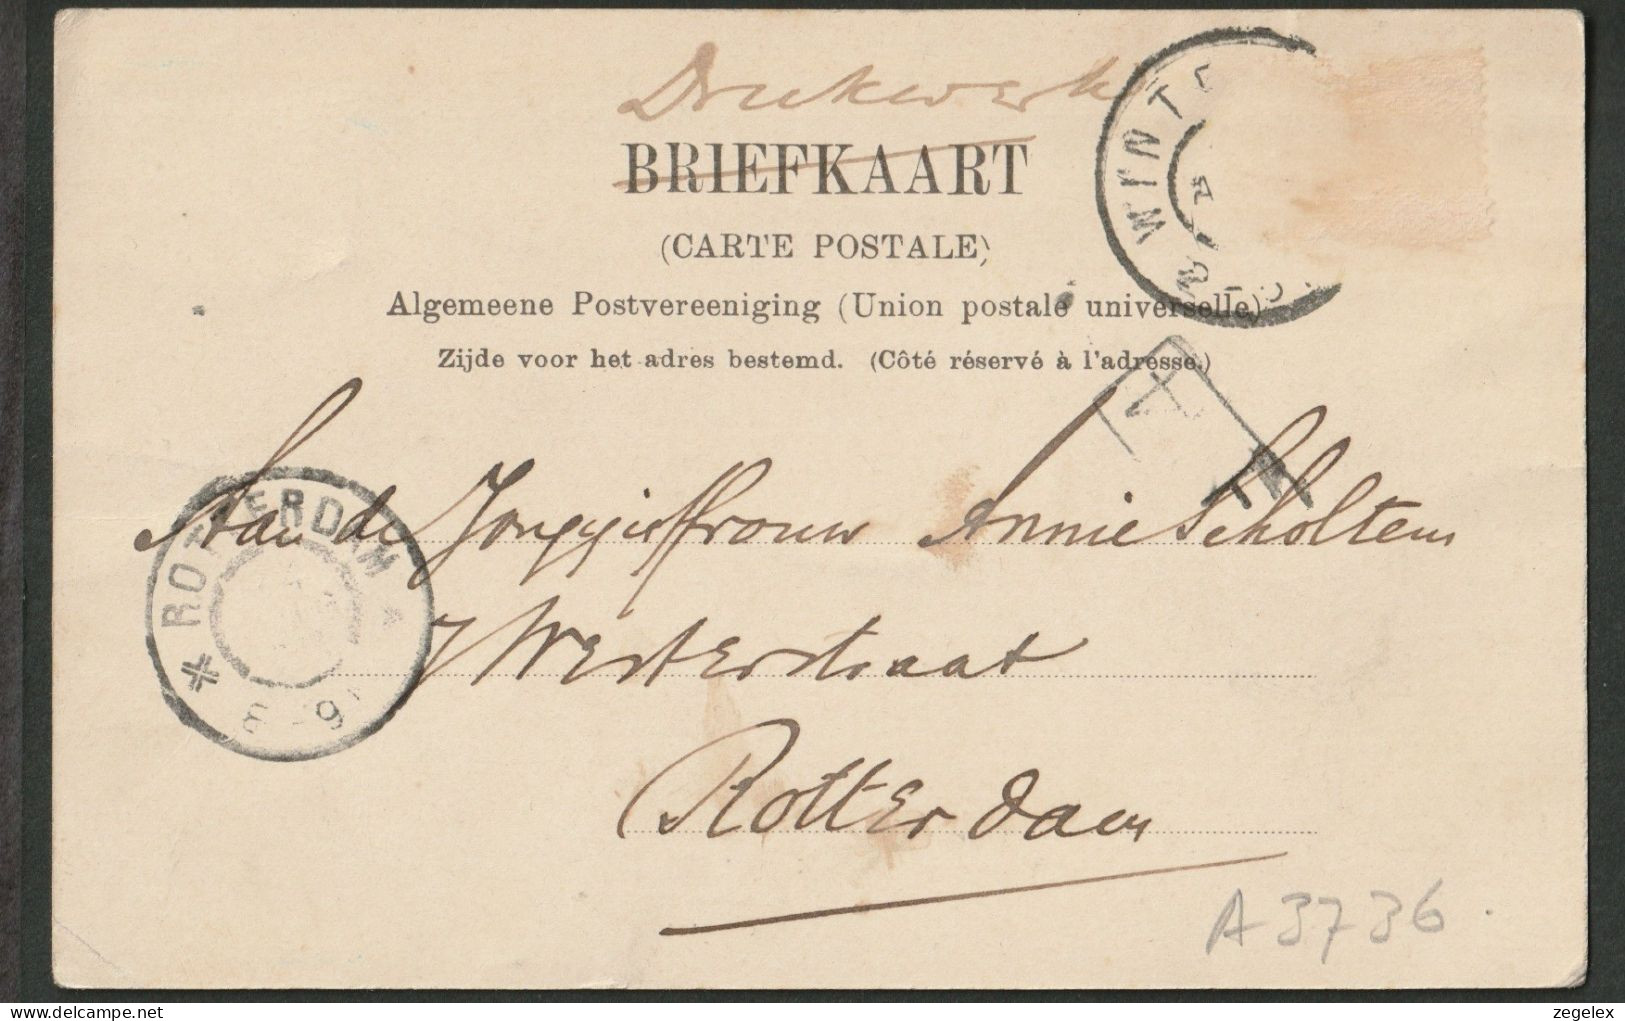 Drukwerk
BRIEFKAART
(CARTE POSTALE)
Algemeene Postvereeniging (Union postale universelle)
Zijde voor het adres bestemd. (Côté réservé à l'adresse.)
WINT
ROTTERDAM
Aan de Jongejuffrouw Annie Scholten
Westerstraat
Rotterdam
A 3736
delcampe.net
zegelex